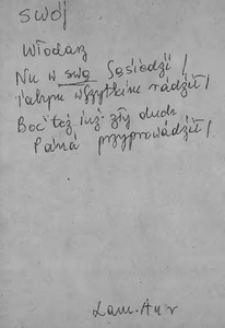 swój
Włodarz
Nu w swą Sąsiedzi /
iabym wszytkim rádził /
Boć też iuż zły duch
Páná przyprowádził /
Lam. Aur